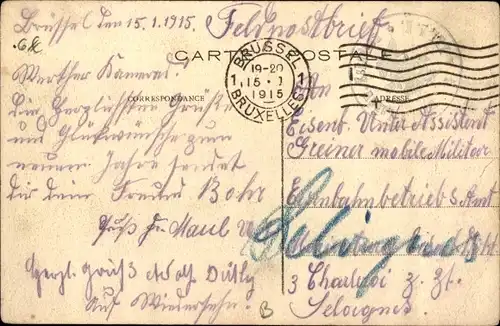 Brüssel den 15.1.1915. Feldpostbrief
CARTE POSTALE
BRÜSSEL
1 19-20 1
15.1
1915
BRUXELLES
CORRESPONDANCE
ADRESSE
Werther Kamerad.
Die herzlichsten Grüße
und Glückwünsche zum
neuen Jahre sendet
dir dein Freund Bohr
Gruß Maul
Herzl. Gruß Adolf
Auf Wiedersehn.
An
Eisenb. Unter Assistent
Greiner mobile Militär
Eisenbahnbetriebs Amt
3 Charleroi z. Zt.
Seloignes
Solignes
B